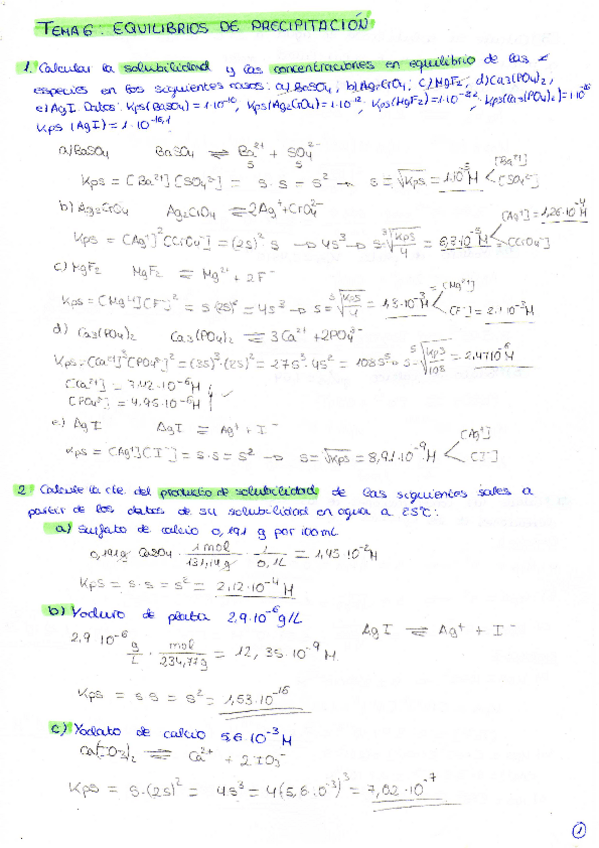 TEMA 6: EQUILIBRIOS DE PRECIPITACIÓN
1. Calcular la solubilidad y las concentraciones en equilibrio de las
especies en los siguientes casos: a) BaSO4; b) Ag2CrO4; c) MgF2; d) Ca3(PO4)2;
e) AgI. Datos: Kps(BaSO4) = 1·10^-10, Kps(Ag2CrO4) = 1·10^-12, Kps(MgF2) = Kps(Ca3(PO4)2) =
Kps (AgI) = 1·10^-16,1
a) BaSO4 BaSO4 ⇌ Ba2+ + SO4 2-
s s
Kps = [Ba2+][SO4 2-] = s·s = s² → s = √Kps = 1·10^-5 M [Ba2+] [SO4 2-]
b) Ag2CrO4 Ag2CrO4 ⇌ 2Ag+ + CrO4 2-
Kps = [Ag+]²[CrO4 2-] = (2s)² s → 4s³ → s = ∛(Kps/4) = 6,3·10^-5 M [Ag+] = 1,26·10^-4 M = [CrO4 2-]
c) MgF2 MgF2 ⇌ Mg2+ + 2F-
Kps = [Mg2+][F-]² = s(2s)² = 4s³ → s = ∛(Kps/4) = 10^-3 M = [Mg2+] [F-] = 2.1·10^-3 M
d) Ca3(PO4)2 Ca3(PO4)2 ⇌ 3Ca2+ + 2PO4 3-
Kps = [Ca2+]³[PO4 3-]² = (3s)³·(2s)² = 27s³·4s² = 108s⁵ → s = ⁵√(Kps/108) = 2,47·10^-6 M
[Ca2+] = 7.42·10^-6 M
[PO4 3-] = 4.95·10^-6 M ✓
e) AgI AgI ⇌ Ag+ + I-
Kps = [Ag+][I-] = s·s = s² → s = √Kps = 8,91·10^-9 M [Ag+] [I-]
2. Calcule la cte. del producto de solubilidad de las siguientes sales a
partir de los datos de su solubilidad en agua a 25ºC:
a) Sulfato de calcio 0,191 g por 100mL
0,191g CaSO4 · 1 mol/131,14g · 1/0,1L = 1,45·10^-2 M
Kps = s·s = s² = 2,12·10^-4 M
b) Yoduro de plata 2,9·10^-6 g/L AgI ⇌ Ag+ + I-
2,9·10^-6 g/L · mol/234,77g = 12,35·10^-9 M
Kps = s·s = s² = 1,53·10^-16
c) Yodato de calcio 5,6·10^-3 M
Ca(IO3)2 ⇌ Ca2+ + 2IO3-
Kps = s·(2s)² = 4s³ = 4(5,6·10^-3)³ = 7,02·10^-7
1